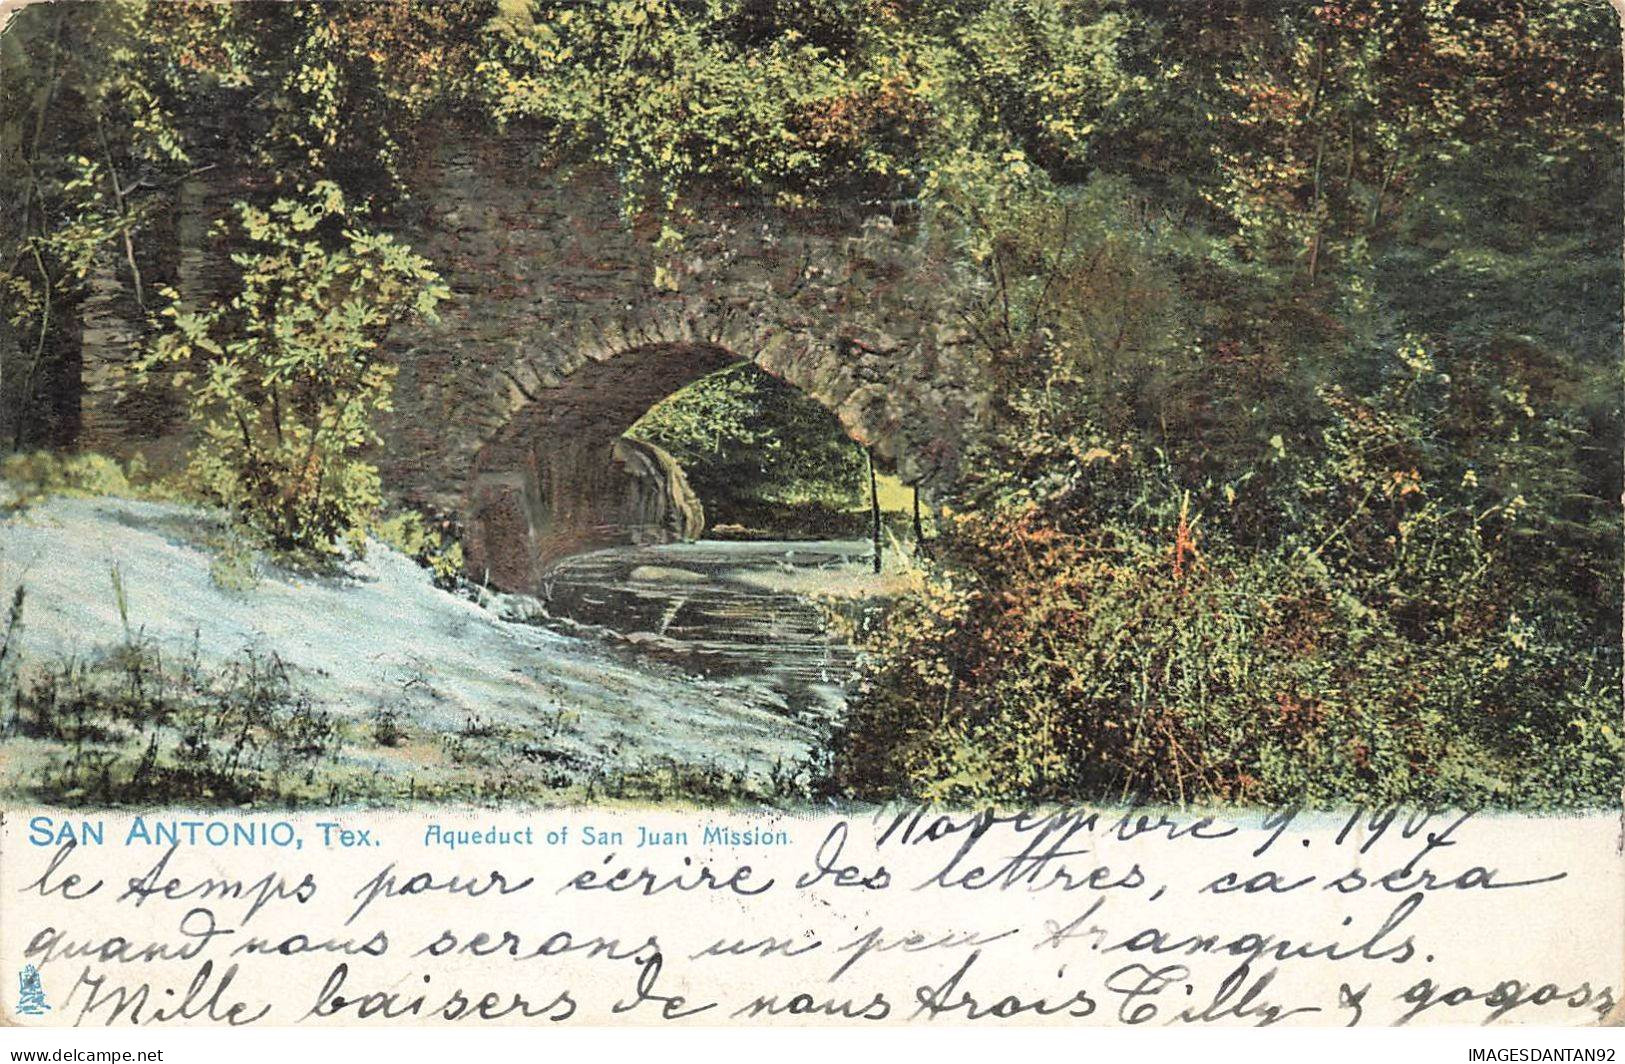 SAN ANTONIO, TEX. Aqueduct of San Juan Mission. Novembre 9. 1907
le temps pour écrire des lettres, ca sera
quand nous serons un peu tranquils.
Mille baisers de nous trois Tilly & gogoss
www.delcampe.net
IMAGESDANTAN92